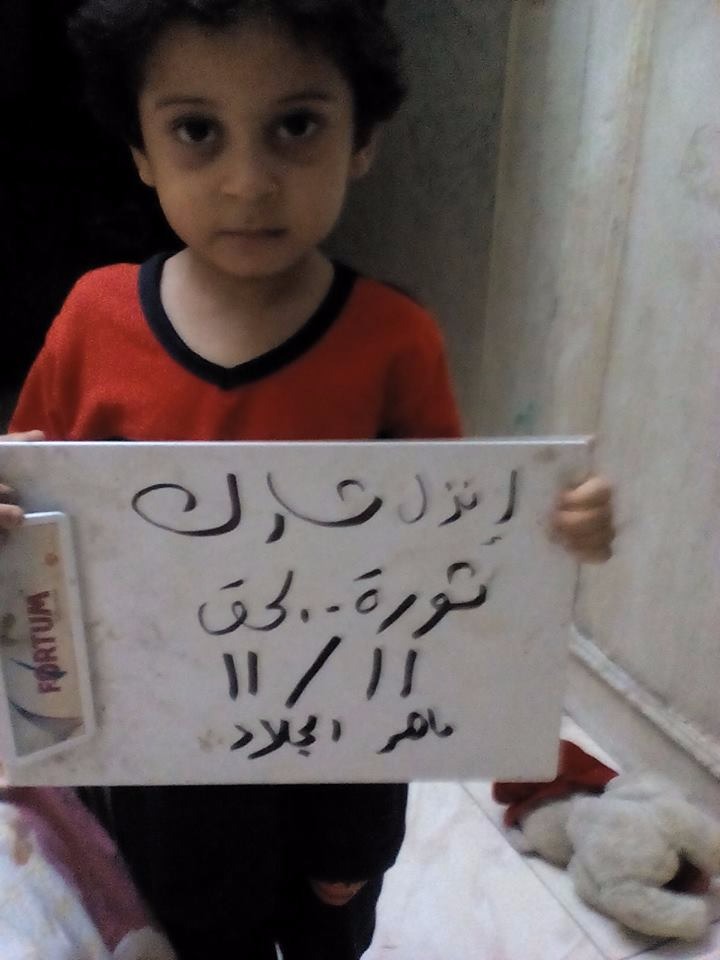 إنزل شارك
ثورة.. لحق
11/11
ماهر الجلاد
FORTUM